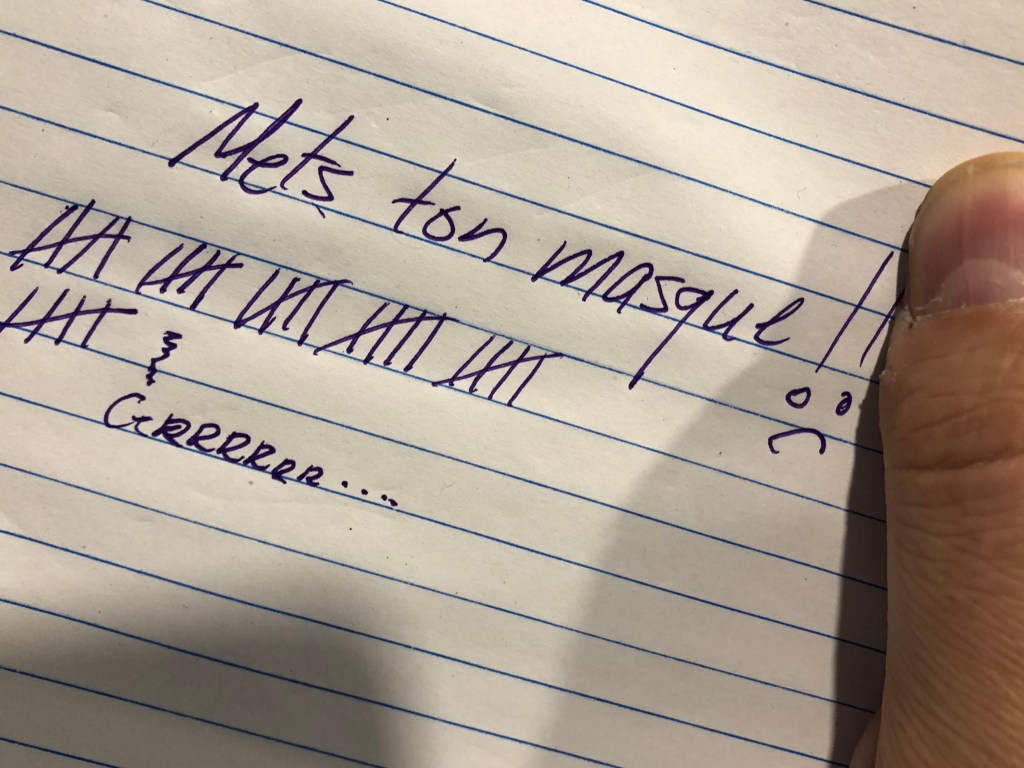 Mets ton masque !!
GRRRRRR....